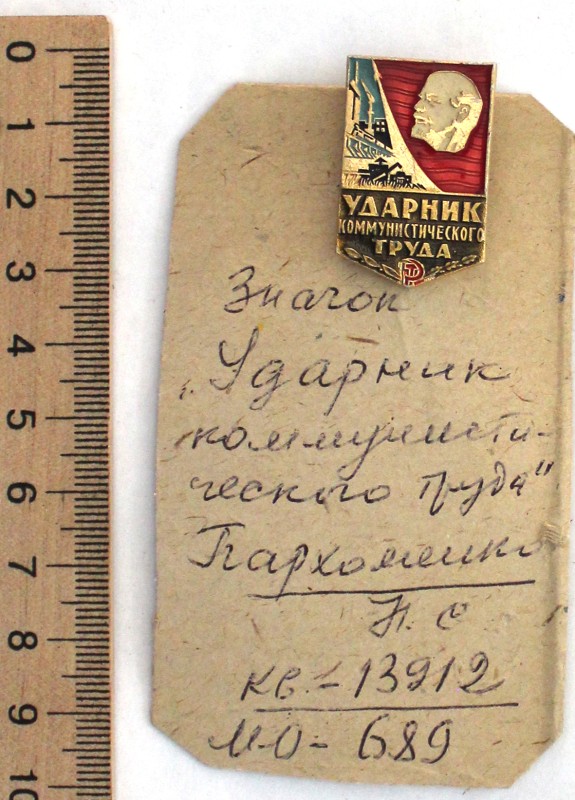 0
1
2
3
4
5
6
7
8
9
10
УДАРНИК
КОММУНИСТИЧЕСКОГО
ТРУДА
Значок
„Ударник
коммунисти-
ческого труда"
Пархоменко
Н. С
кв - 13912
МО - 689